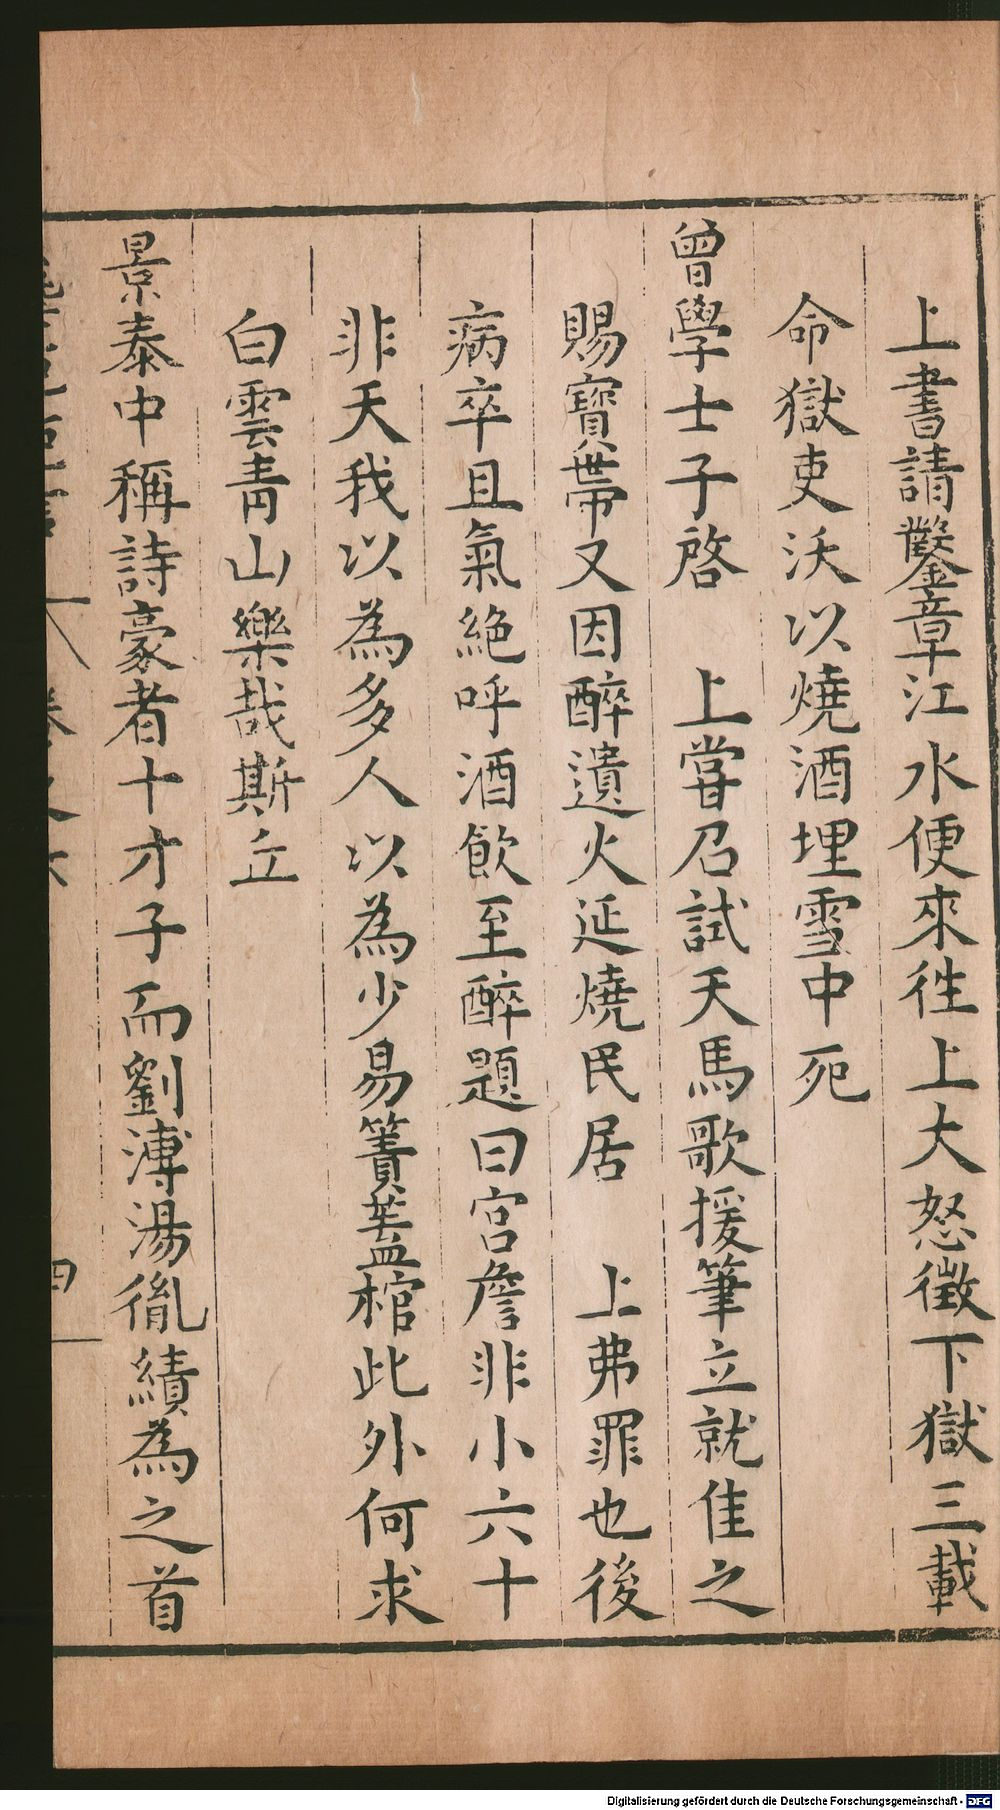 上書請鑿章江水便來徃上大怒徵下獄三載
命獄吏沃以燒酒埋雪中死
曾學士子啓　上甞召試天馬歌援筆立就佳之
賜寶帶又因醉遺火延燒民居　上弗罪也後
病卒且氣絕呼酒飲至醉題曰宮詹非小六十
非天我以為多人以為少易簀蓋棺此外何求
白雲青山樂哉斯丘
景泰中稱詩豪者十才子而劉溥湯胤績為之首
卷之六
四
Digitalisierung gefördert durch die Deutsche Forschungsgemeinschaft - DFG